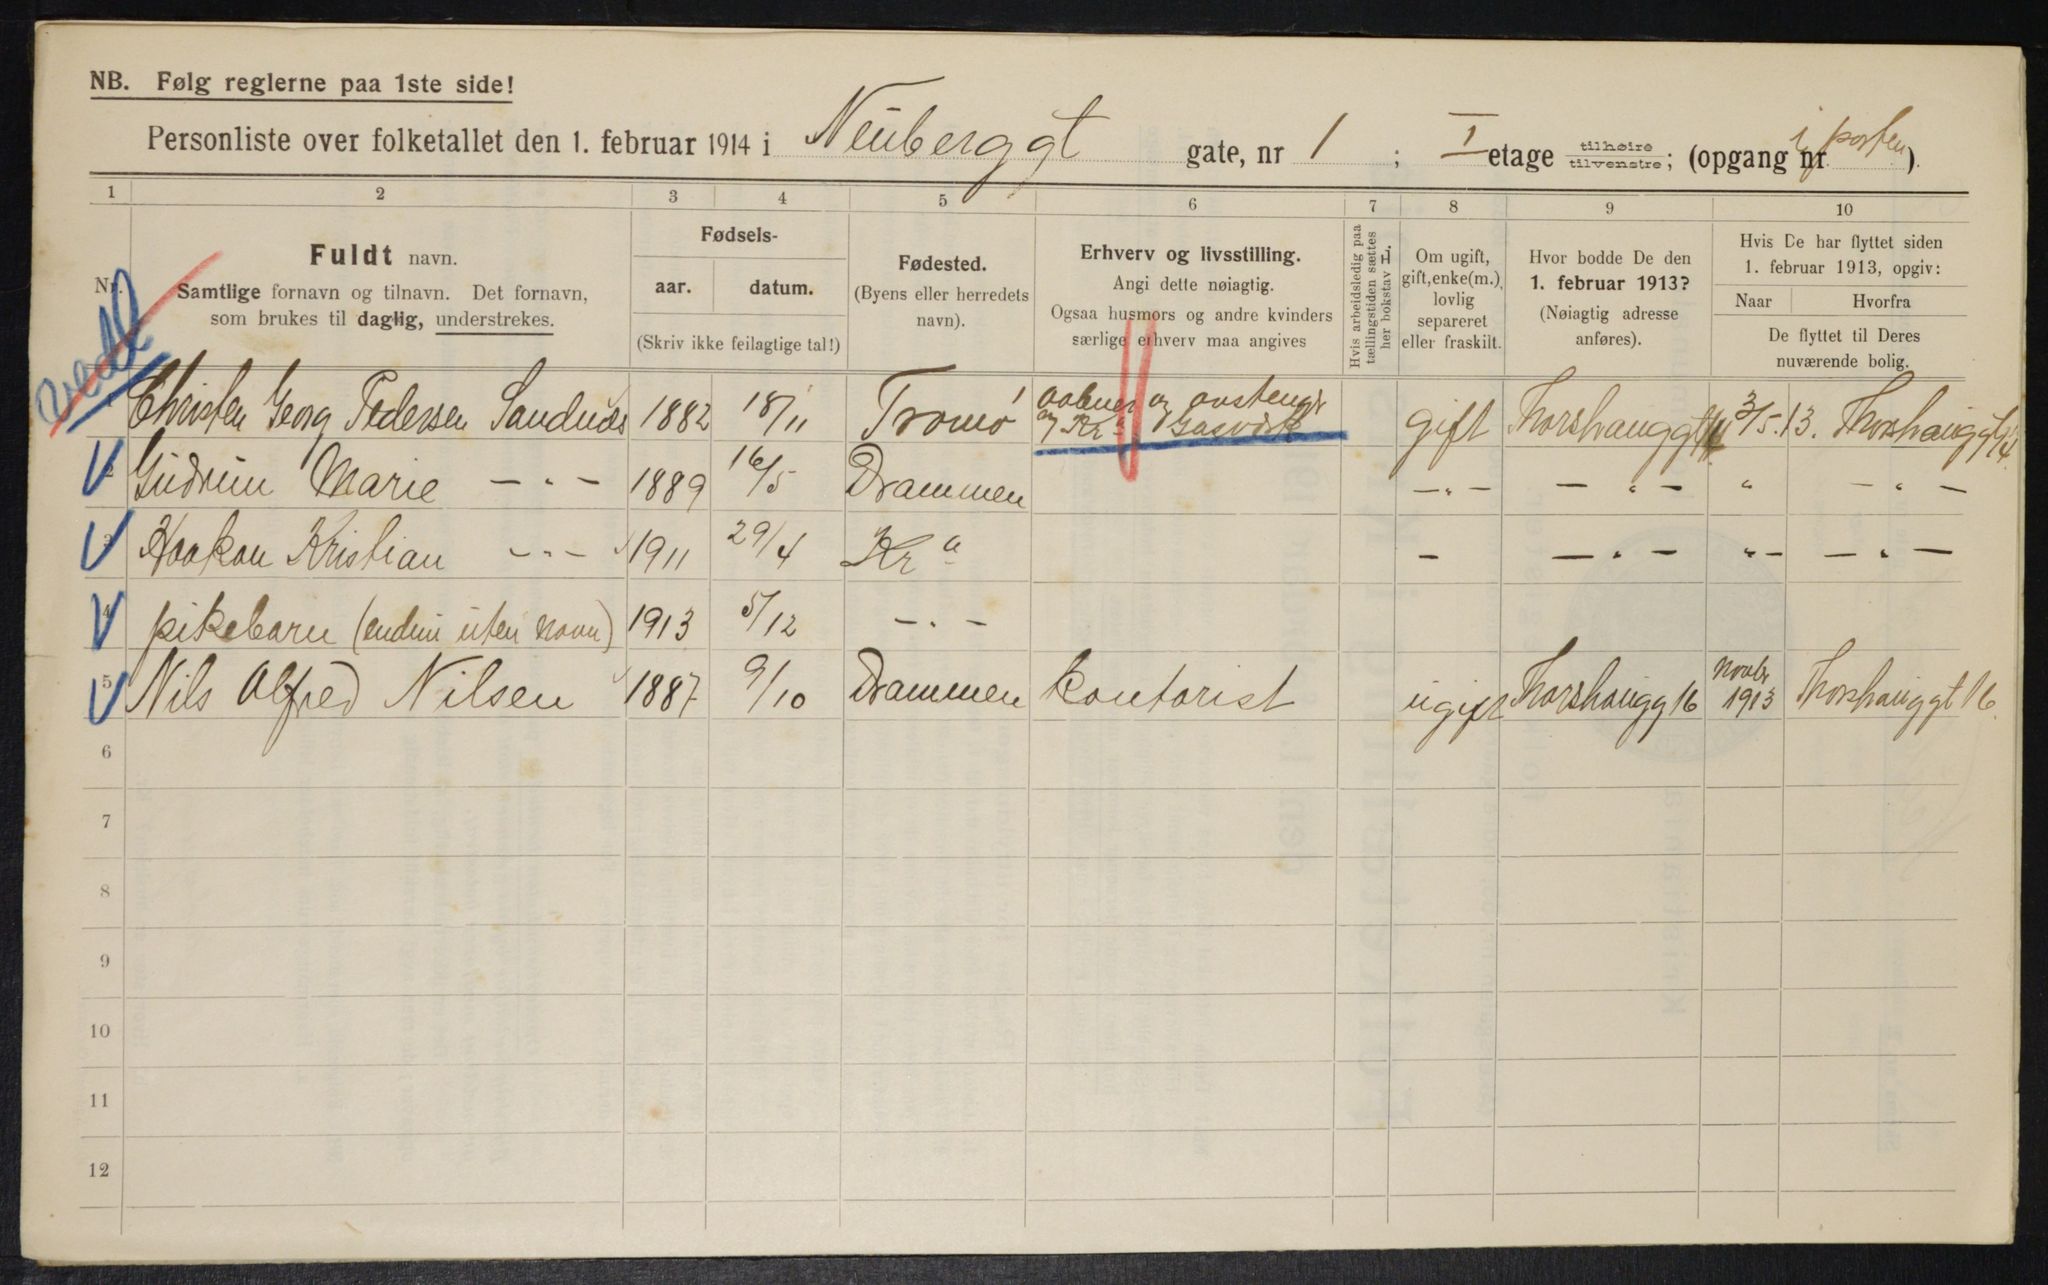 NB. Følg reglerne paa 1ste side!
Personliste over folketallet den 1. februar 1914 i Neuberggt gate, nr 1 ; I etage tilhøire tilvenstre; (opgang nr i porten ).
1 2 3 4 5 6 7 8 9 10
Nr.
Fuldt navn.
Samtlige fornavn og tilnavn. Det fornavn,
som brukes til daglig, understrekes.
Fødsels-
aar. datum.
(Skriv ikke feilagtige tal!)
Fødested.
(Byens eller herredets
navn).
Erhverv og livsstilling.
Angi dette nøiagtig.
Ogsaa husmors og andre kvinders
særlige erhverv maa angives
Hvis arbeidsledig paa
tællingstiden sættes
her bokstav H.
Om ugift,
gift, enke(m.),
lovlig
separeret
eller fraskilt.
Hvor bodde De den
1. februar 1913?
(Nøiagtig adresse
anføres).
Hvis De har flyttet siden
1. februar 1913, opgiv:
Naar Hvorfra
De flyttet til Deres
nuværende bolig.
Christen Georg Pedersen Sandnæs 1882 18/11 Tromö og Kra Gasverk gift Thorshauggt 14 3/5.13. Thorshauggt 14
2 Gudrun Marie — „ — 1889 16/5 Drammen — „ — — „ — „ — „ —
3 Haakon Kristian — „ — 1911 29/4 Kra — — „ — „ — — „ —
4 pikebarn (endnu uten navn) 1913 5/12 — „ —
5 Nils Alfred Nilsen 1887 9/10 Drammen kontorist ugift Thorshaugg 16 Novbr 1913 Thorshauggt 16
6
7
8
9
10
11
12